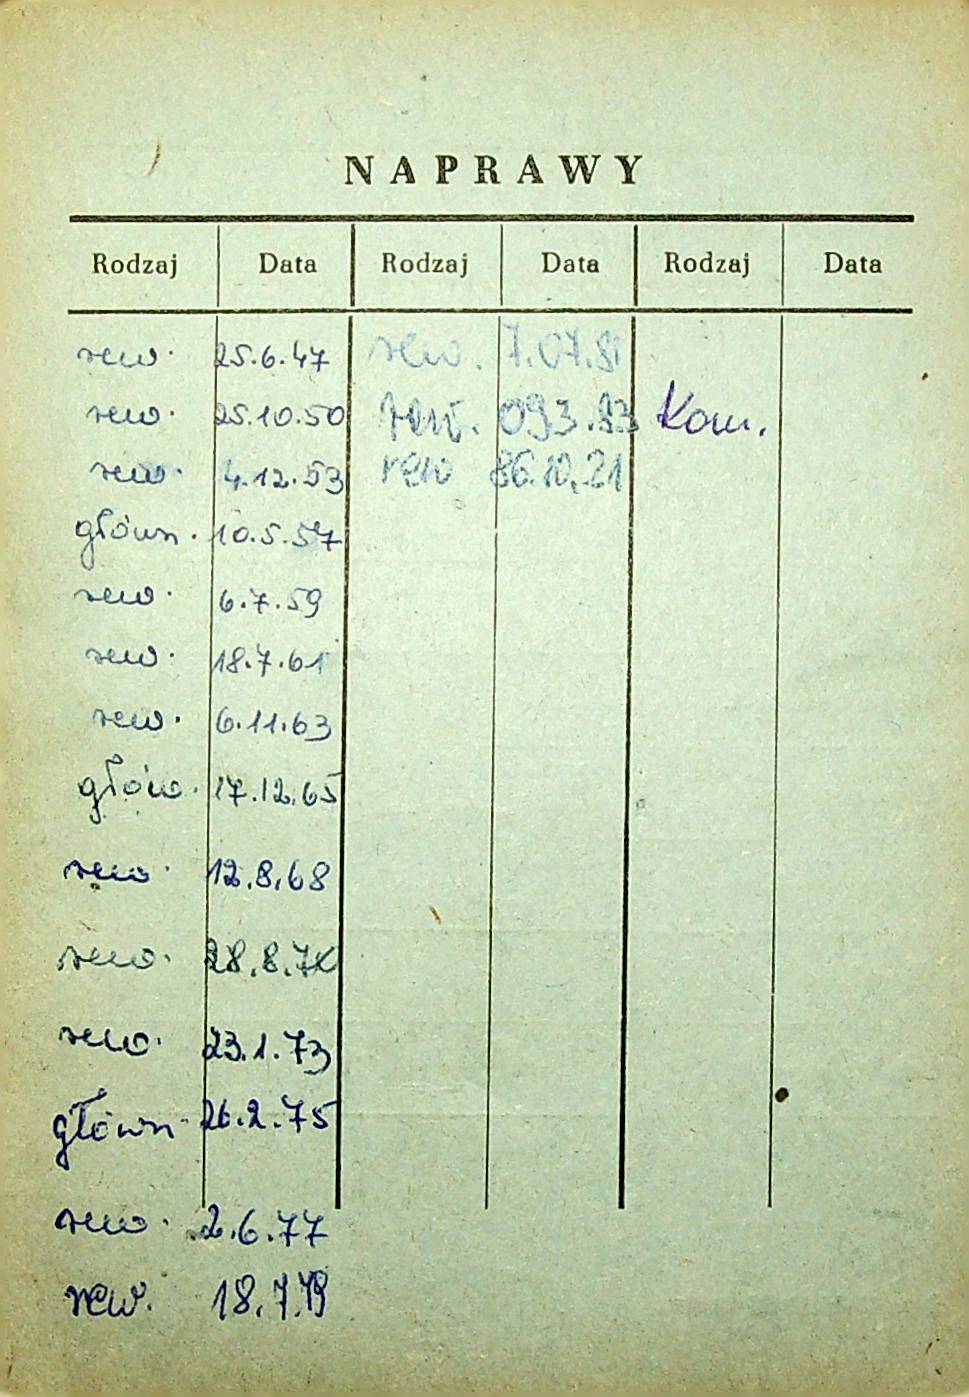 NAPRAWY
Rodzaj Data Rodzaj Data Rodzaj Data
rew. 25.6.47 rew. 7.07.81
rew. 25.10.50 rew. 093.83 Kom.
rew. 4.12.53 rew 86.10.21
główn. 10.5.57
rew. 6.7.59
rew. 18.7.61
rew. 6.11.63
główn. 17.12.65
rew. 12.8.68
rew. 28.8.
rew. 23.1.73
główn. 26.2.75
rew. 2.6.77
rew. 18.7.79